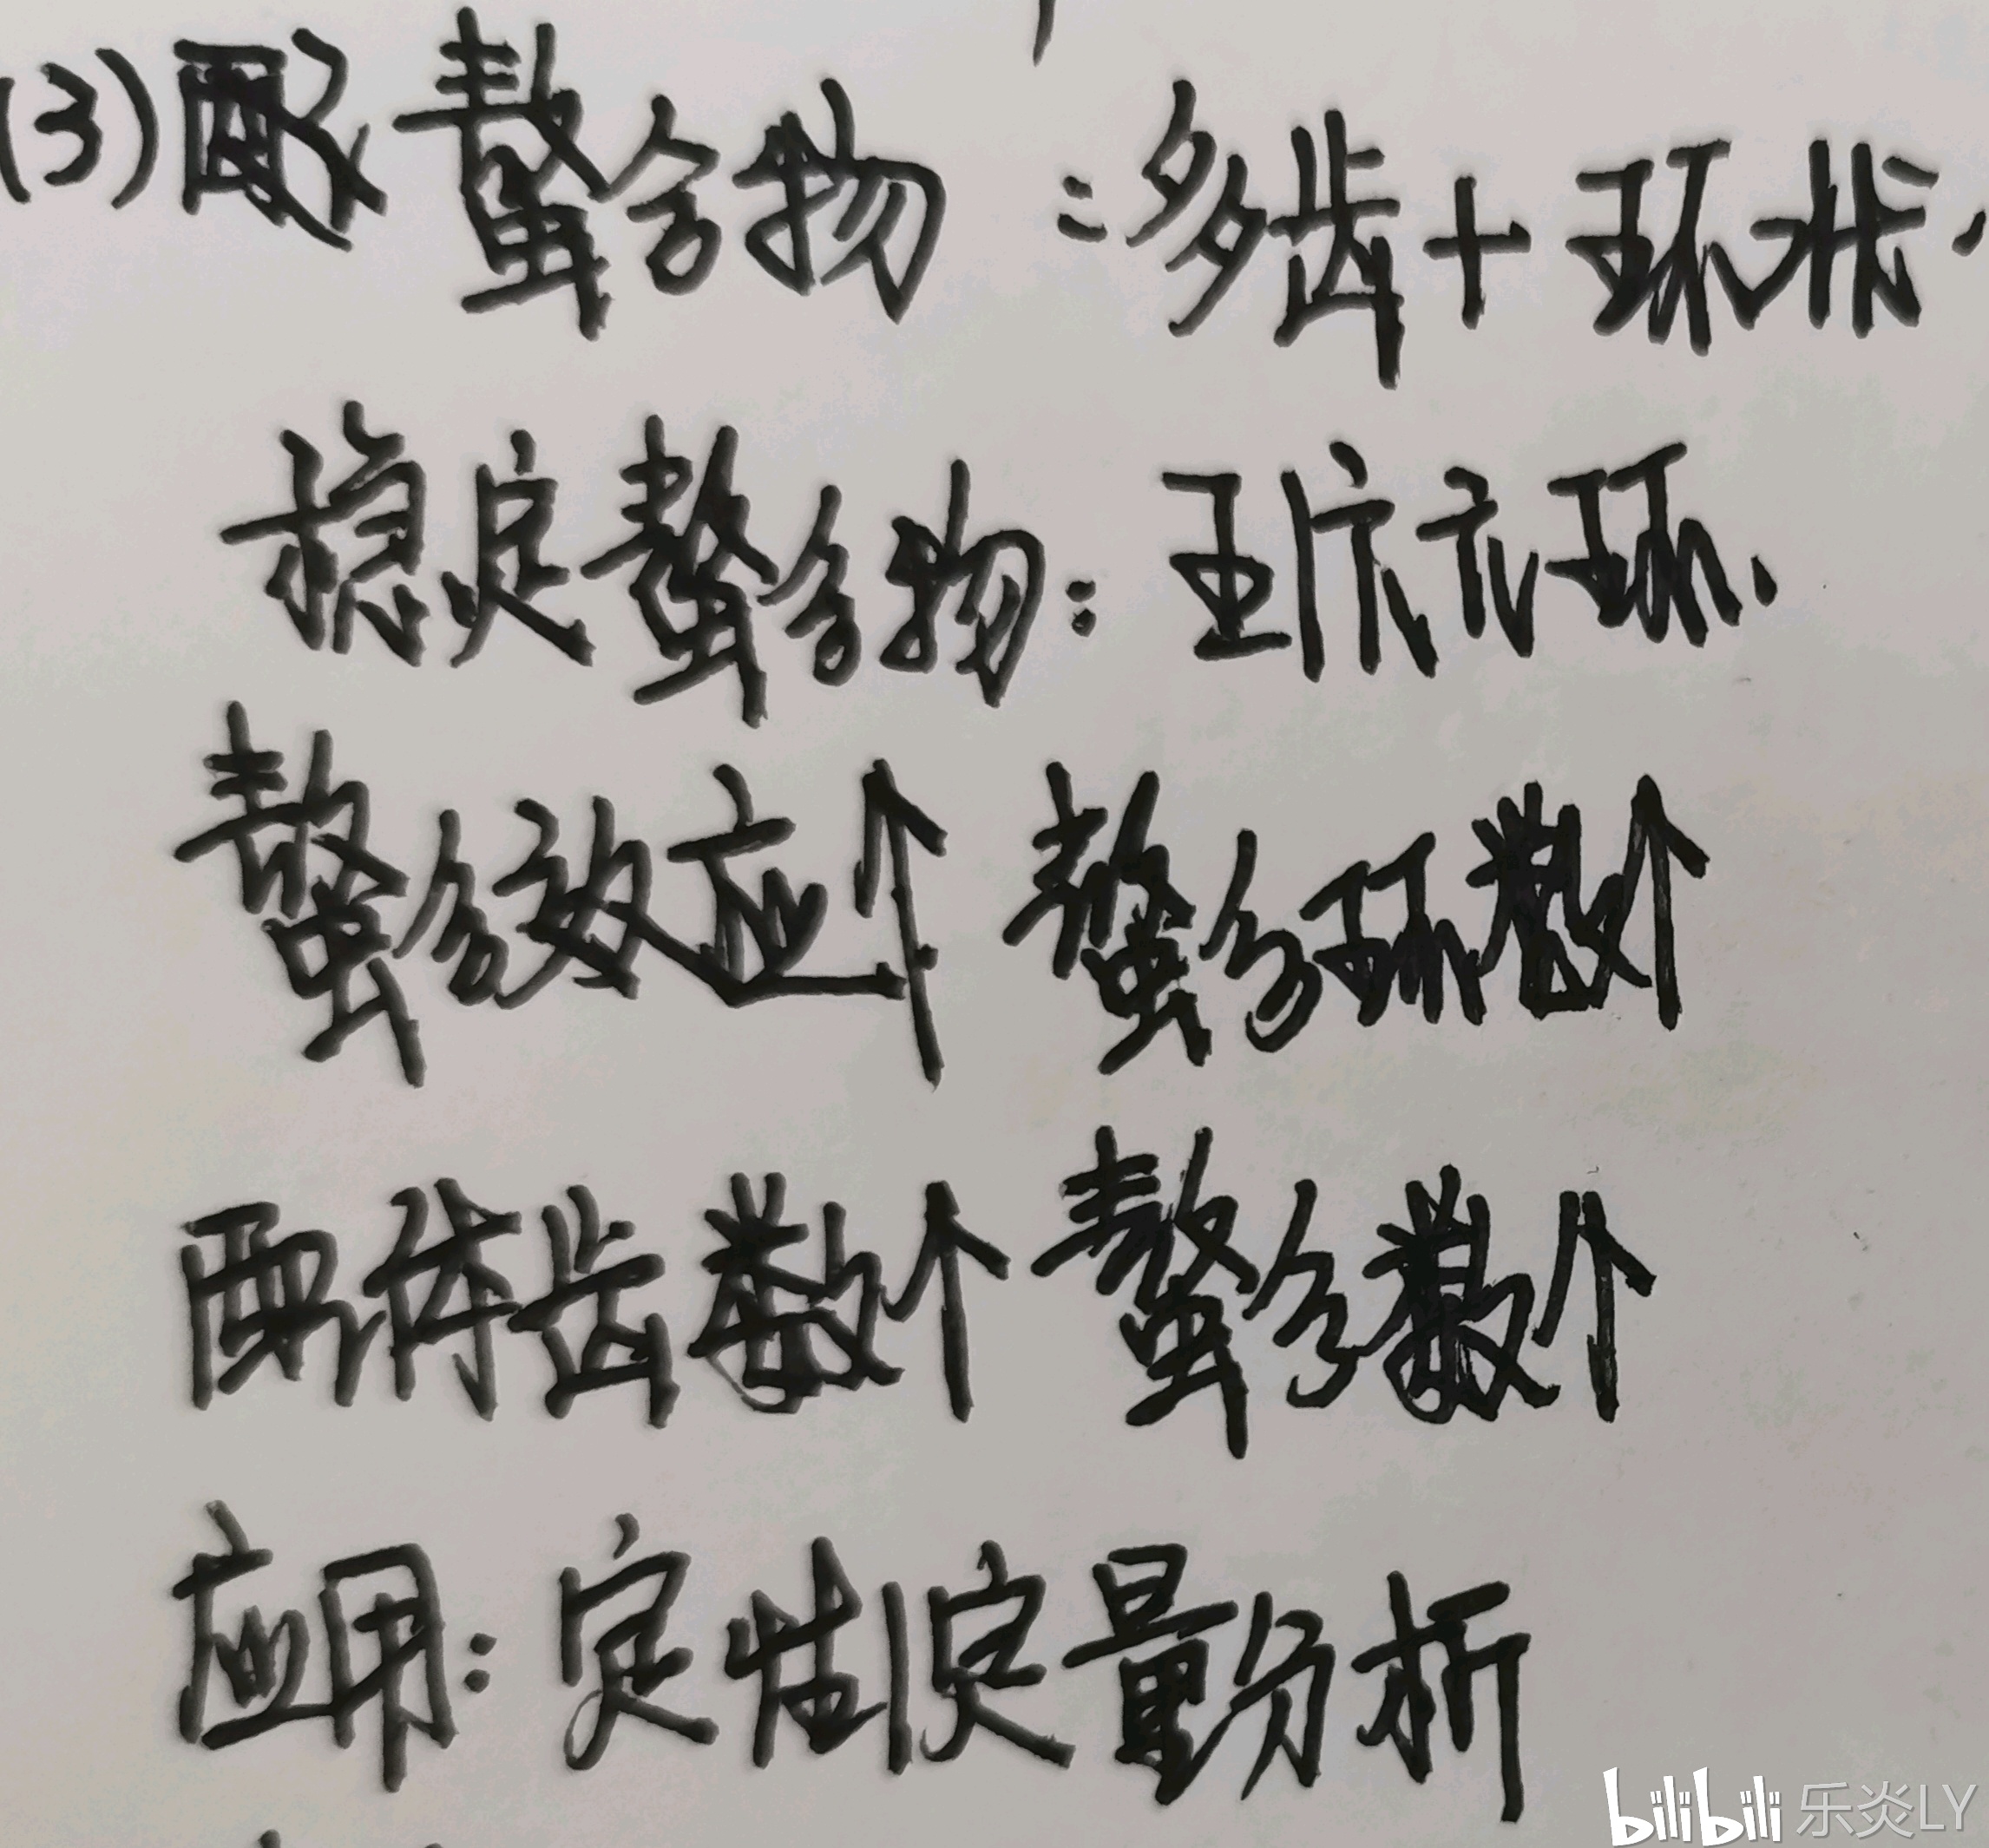 (3) 螯合物:多齿+环状.
稳定螯合物:五|六元环.
螯合效应↑ 螯合环数↑
配体齿数↑ 螯合数↑
应用:定性|定量分析
bilibili 乐炎LY